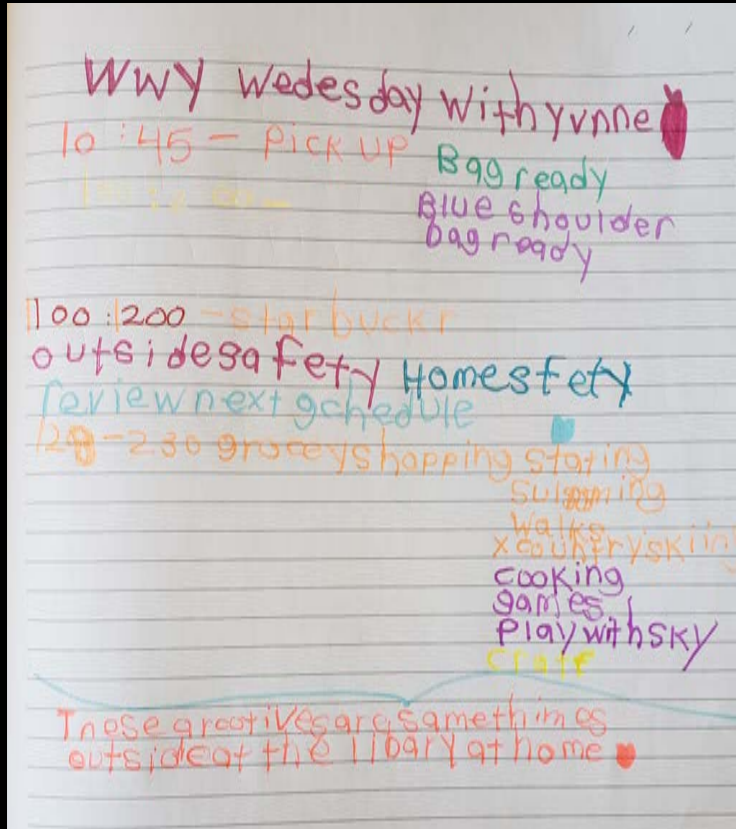 WWY Wedesday Withyvnne
10:45 - Pick UP
Bag ready
Blue shoulder
bag ready
100:1200 - starbuckr
outsidesafety Homesfety
reviewnextschedule
-230 groceyshopping stating
walks
xcountryskiing
cooking
games
Playwithsky
Craft
outsideat the libary at home